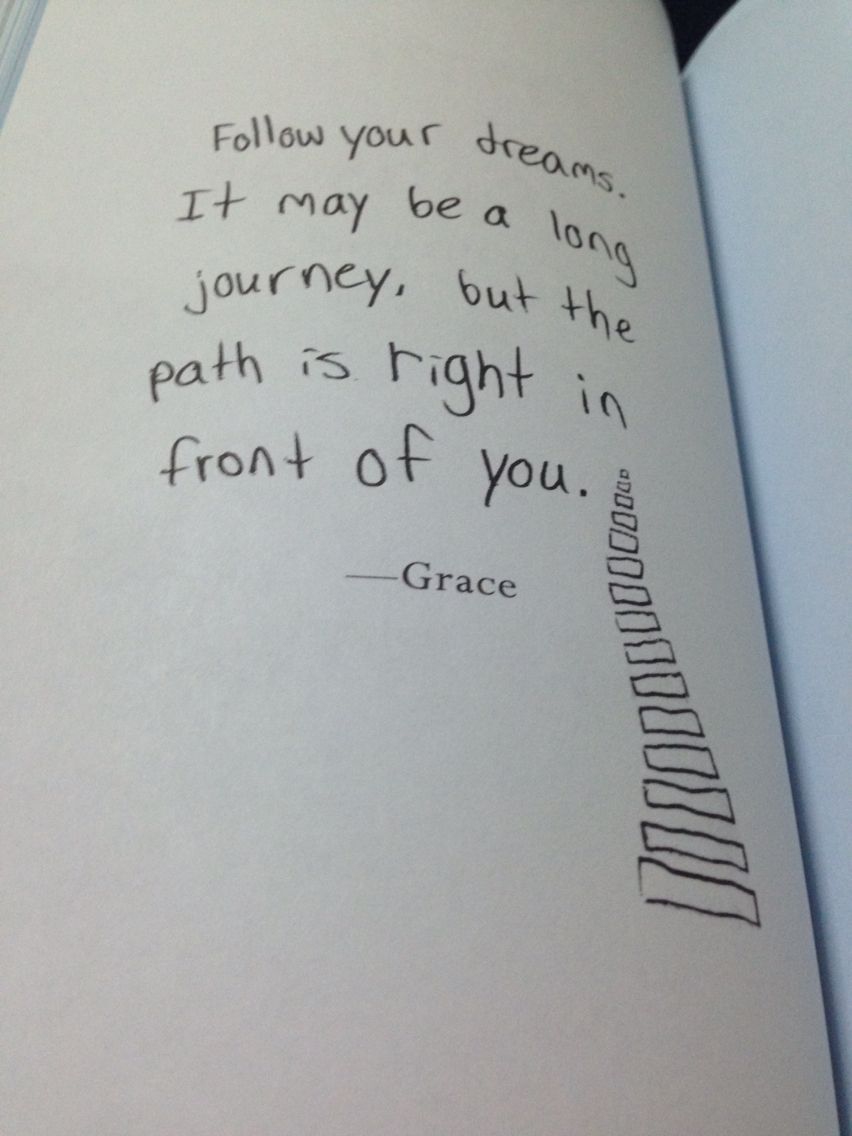 Follow your dreams.
It may be a long
journey, but the
path is right in
front of you.
—Grace